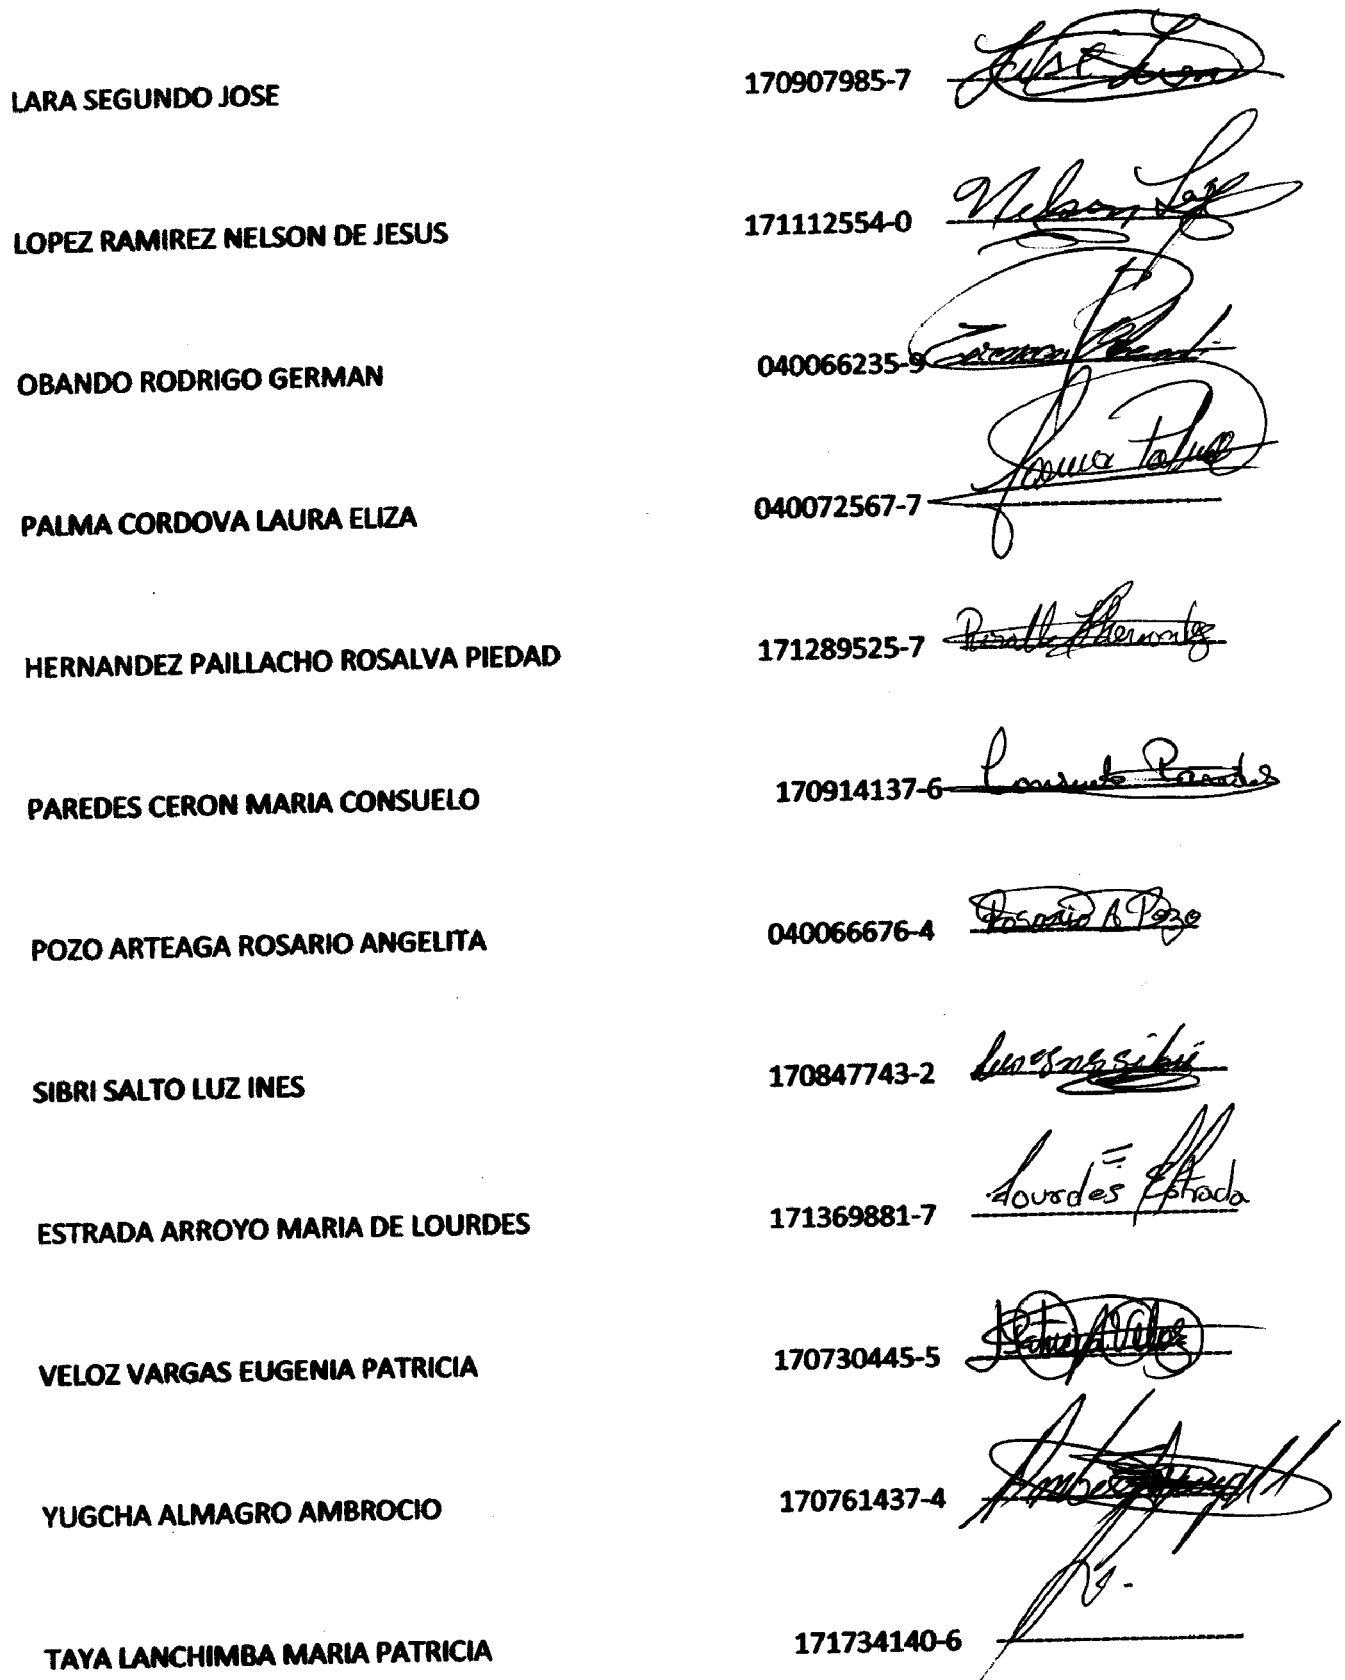 LARA SEGUNDO JOSE 170907985-7
LOPEZ RAMIREZ NELSON DE JESUS 171112554-0 Nelson
OBANDO RODRIGO GERMAN 040066235-9
PALMA CORDOVA LAURA ELIZA 040072567-7 Laura Palma
HERNANDEZ PAILLACHO ROSALVA PIEDAD 171289525-7
PAREDES CERON MARIA CONSUELO 170914137-6 Consuelo Paredes
POZO ARTEAGA ROSARIO ANGELITA 040066676-4 Rosario A Pozo
SIBRI SALTO LUZ INES 170847743-2
ESTRADA ARROYO MARIA DE LOURDES 171369881-7 Lourdes Estrada
VELOZ VARGAS EUGENIA PATRICIA 170730445-5
YUGCHA ALMAGRO AMBROCIO 170761437-4
TAYA LANCHIMBA MARIA PATRICIA 171734140-6